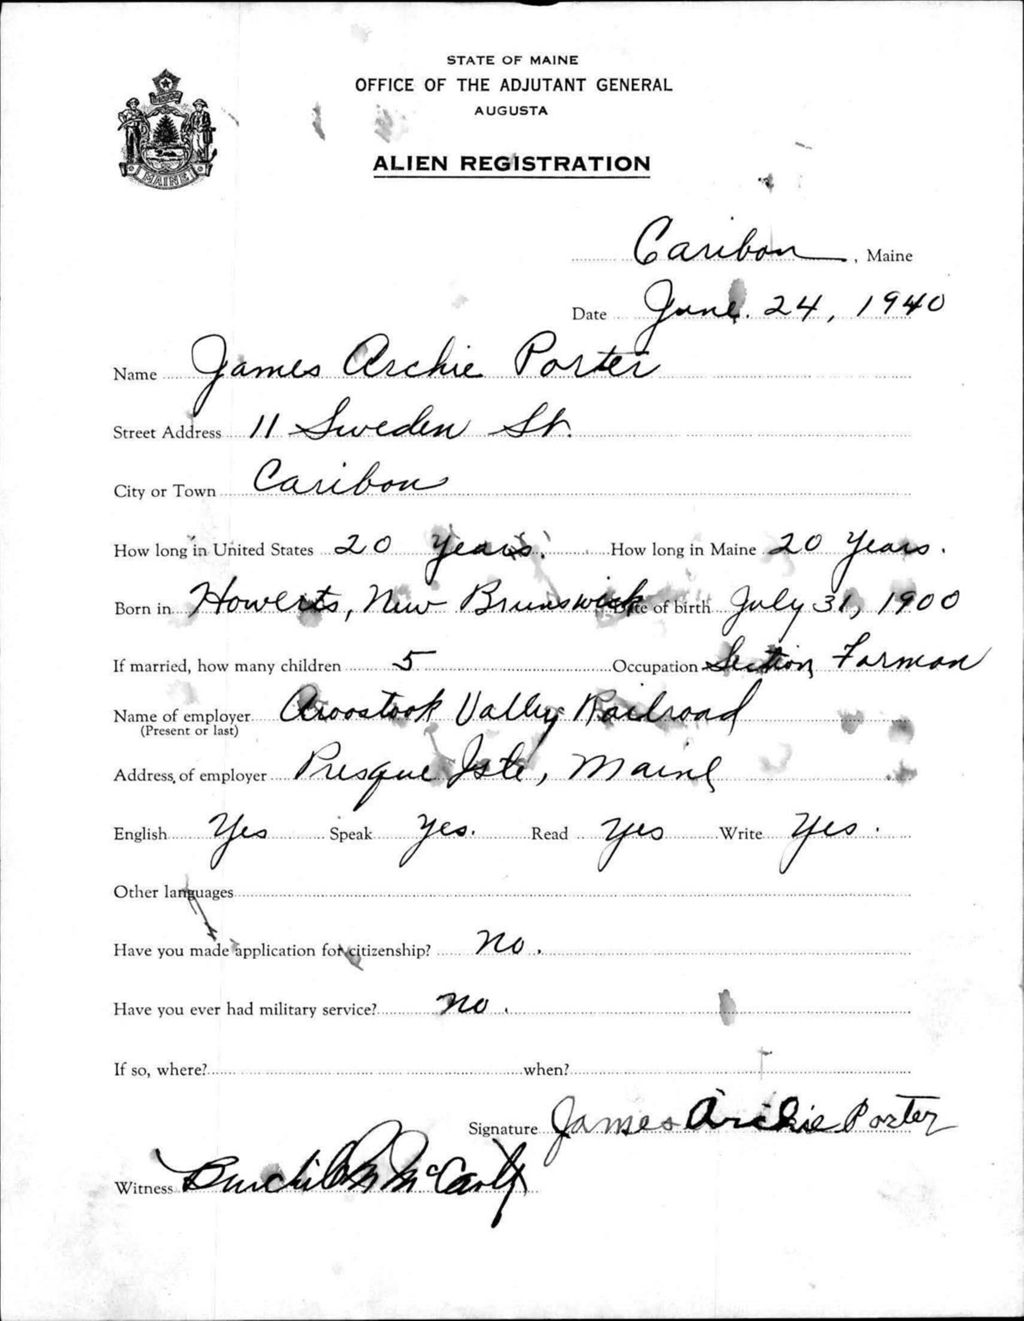 STATE OF MAINE
OFFICE OF THE ADJUTANT GENERAL
AUGUSTA
ALIEN REGISTRATION
MAINE
Caribou, Maine
Date June 24, 1940
Name James Archie Porter
Street Address 11 Sweden St.
City or Town Caribou
How long in United States 20 years. How long in Maine 20 years.
Born in Howerts, New Brunswick Date of birth July 31, 1900
If married, how many children 5 Occupation Section Forman
Name of employer Aroostook Valley Railroad
(Present or last)
Address of employer Presque Isle, Maine
English Yes Speak yes. Read yes Write yes.
Other languages
Have you made application for citizenship? no.
Have you ever had military service? no.
If so, where? when?
Signature James Archie Porter
Witness McCarty